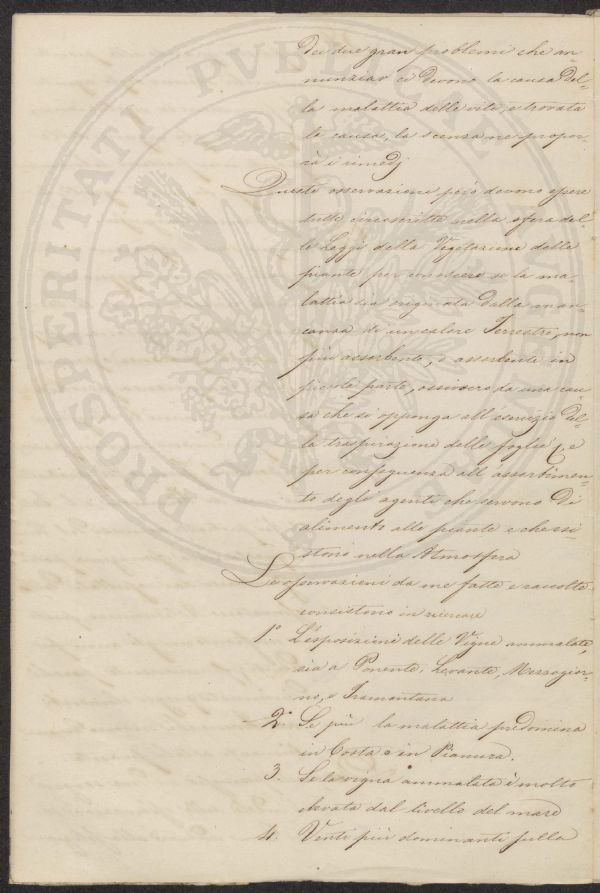 dei due gran problemi che an-
nunziar ci devono la causa del-
la malattia delle vite, e trovata
la causa, la scienza ne propor-
rà i rimedj
Queste osservazioni però devono essere
tutte circoscritte nella sfera del-
le Leggi della Vegetazione delle
piante per conoscere se la ma-
lattia sia originata dalla man-
canza di un calore Terrestre, non
più assorbente, o assorbente in
piccola parte, ossivero da una cau-
sa che si opponga all'esercizio del-
la traspirazione delle foglie, e
per conseguenza all'assortimen-
to degli agenti che servono di
alimento alle piante e che esi-
stono nella Atmosfera
Le osservazioni da me fatte e raccolte
consistono in ricercare
1° L'esposizione delle Vigne ammalate,
sia a Ponente, Levante, Mezzogior-
no, e Tramontana
2° Se più la malattia predomina
in Costa o in Pianura.
3. Se la vigna ammalata è molto
elevata dal livello del mare
4. Venti più dominanti sulla
PROSPERITATI PVBLICAE